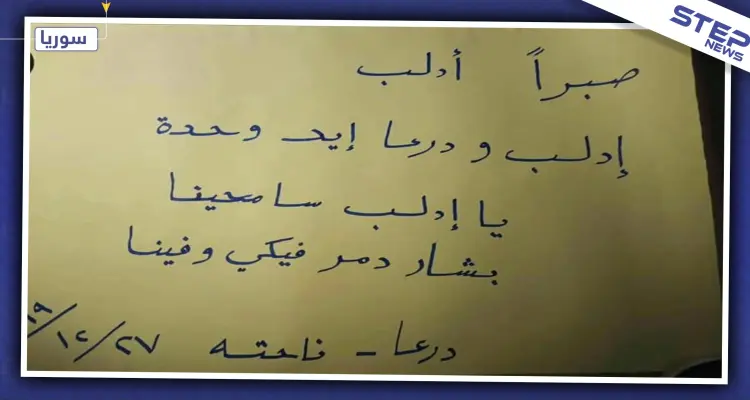 سوريا
STEP
NEWS
صبراً أدلب
إدلب و درعا إيد وحدة
يا إدلب سامحينا
بشار دمر فيكي وفينا
درعا - ناحته ٢٧/١٢/١٩